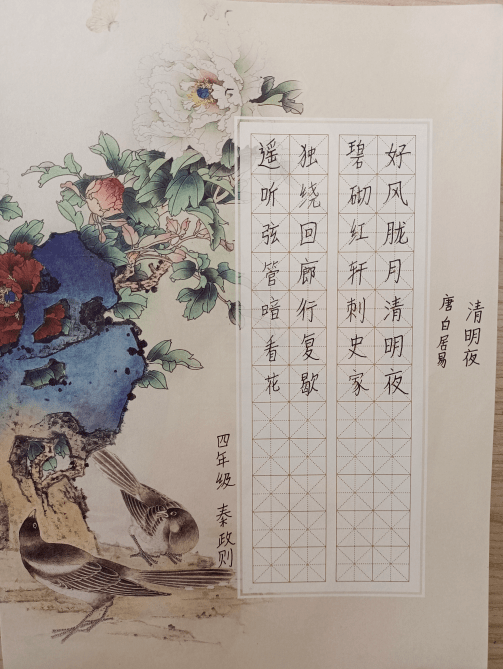 清明夜
唐 白居易
好风胧月清明夜
碧砌红轩刺史家
独绕回廊行复歇
遥听弦管暗看花
四年级 秦政则